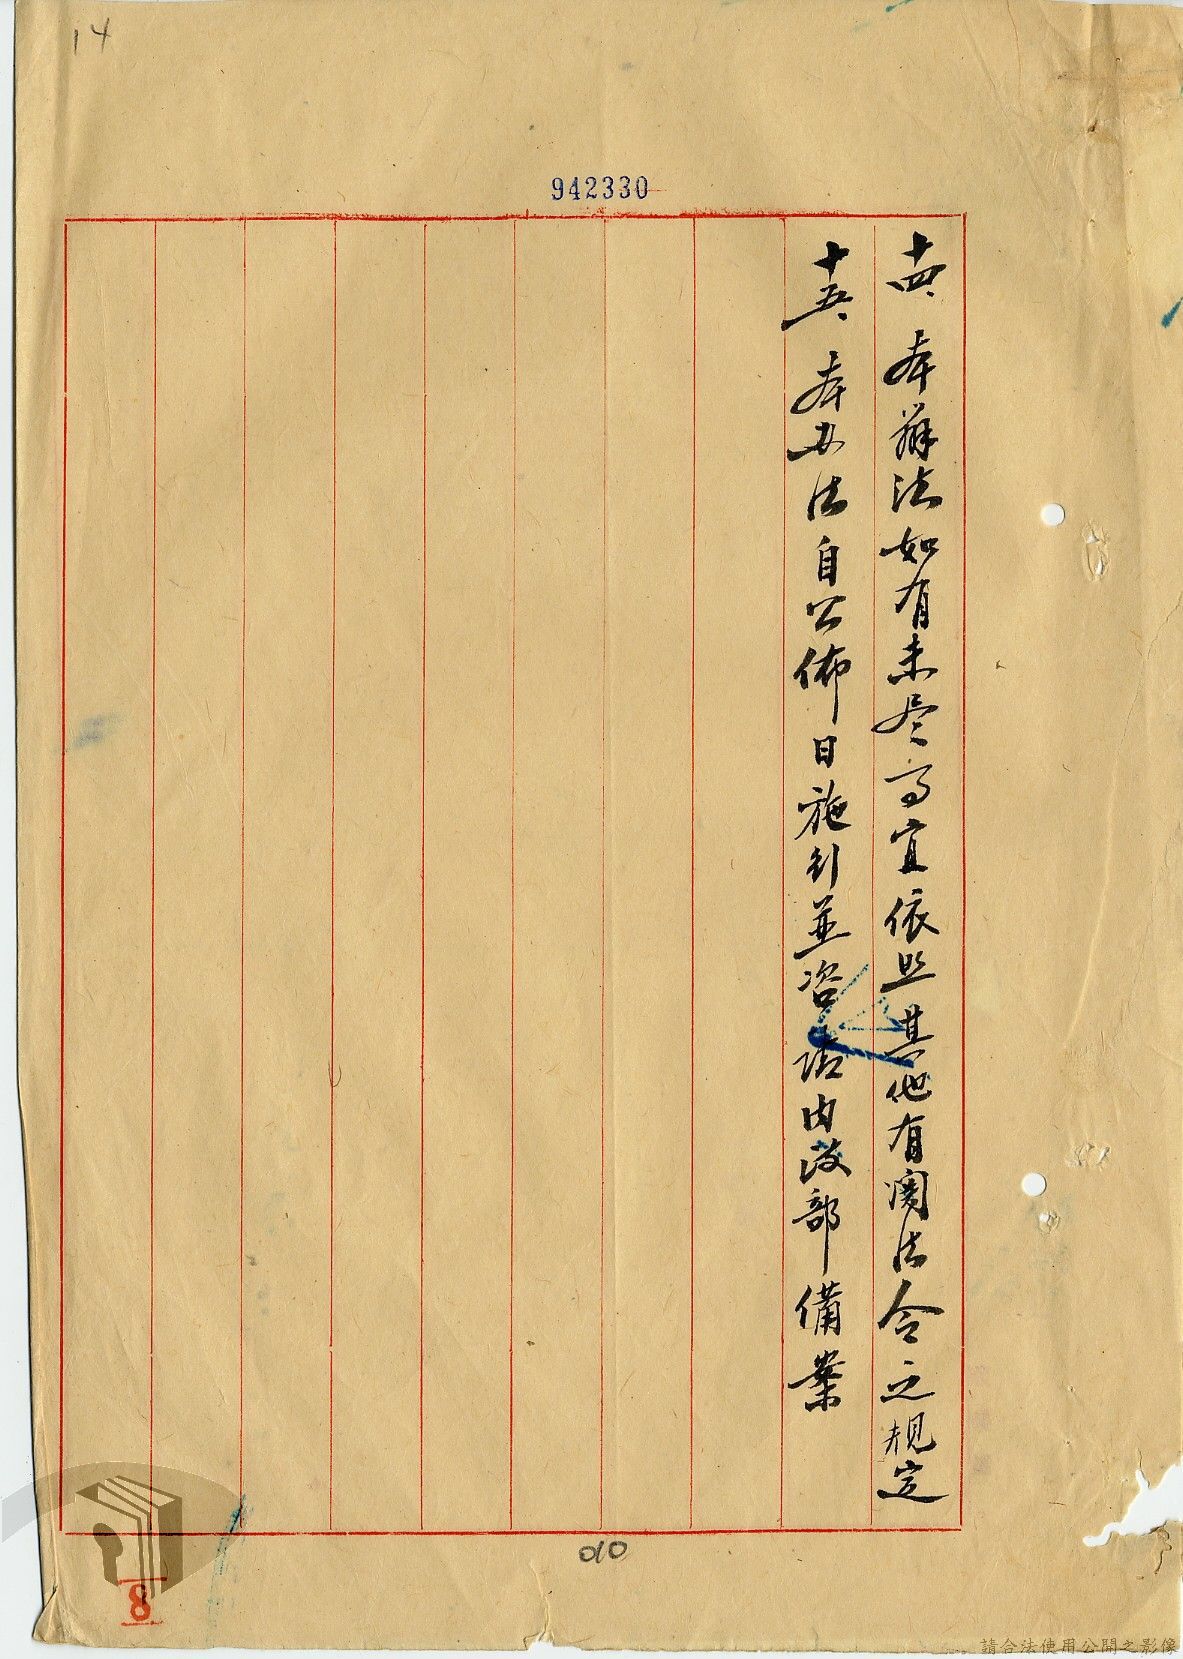 14
942330
十四、本辦法如有未尽事宜依照其他有関法令之規定
十五、本办法自公佈日施行並咨請内政部備案
010
8
請合法使用公開之影像